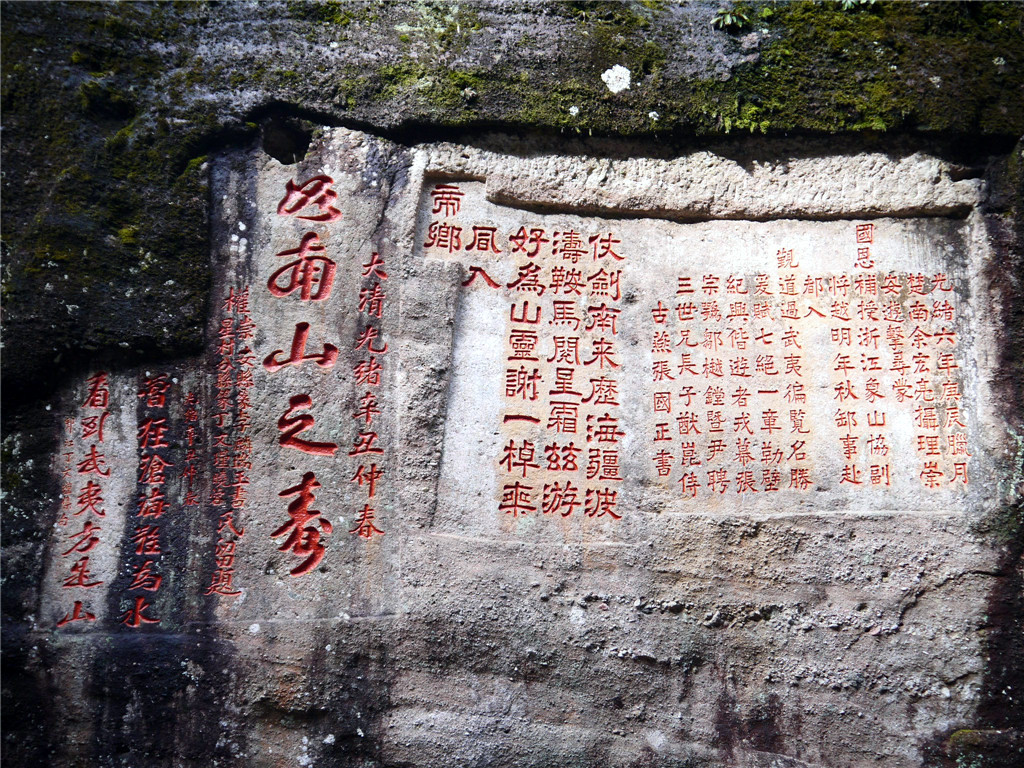 光緒六年庚辰臘月
楚南余宏亮攝理崇
安遊擊尋蒙
國恩補授浙江象山協副
將越明年秋卸事赴
都入
觀道過武夷徧覽名勝
爰賦七絕一章勒壁
紀興偕遊者戎幕張
宗鶚鄒樾鐙暨尹聘
三世兄長子猷崑侍
古燕張國正書
仗劍南来歷海疆波
濤鞍馬閱星霜茲游
好爲山靈謝一棹乘
風入
帝鄉
大清光緒辛丑仲春
如南山之壽
權崇安縣 氏留題
曾經滄海難為水
看到武夷方是山